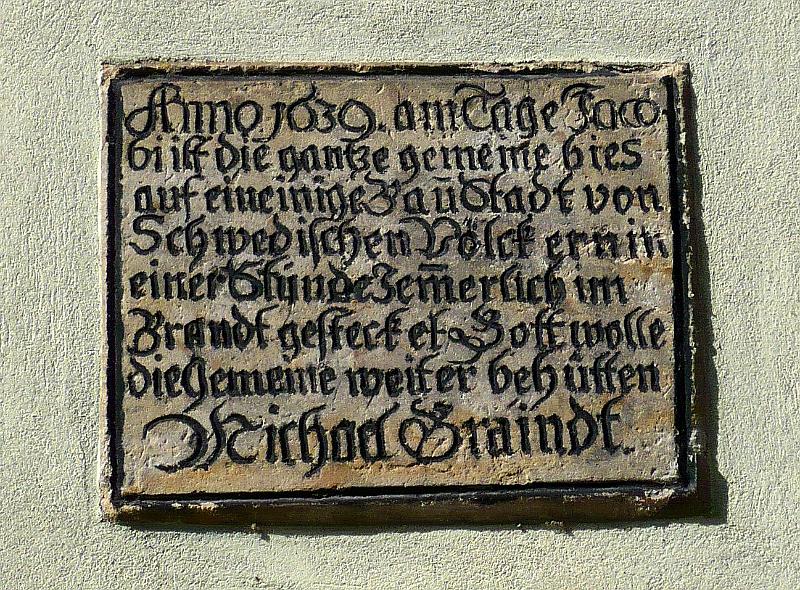 Anno 1639. am Tage Jaco
bi ist die gantze gemeine bies
auf eineinige Bau Stadt von
Schwedischen Völck ern in
einer Stunde Jem̅erlich im
Brandt gesteck et Gott wolle
die Gemeine weiter beh ütten
Michael Graindt.